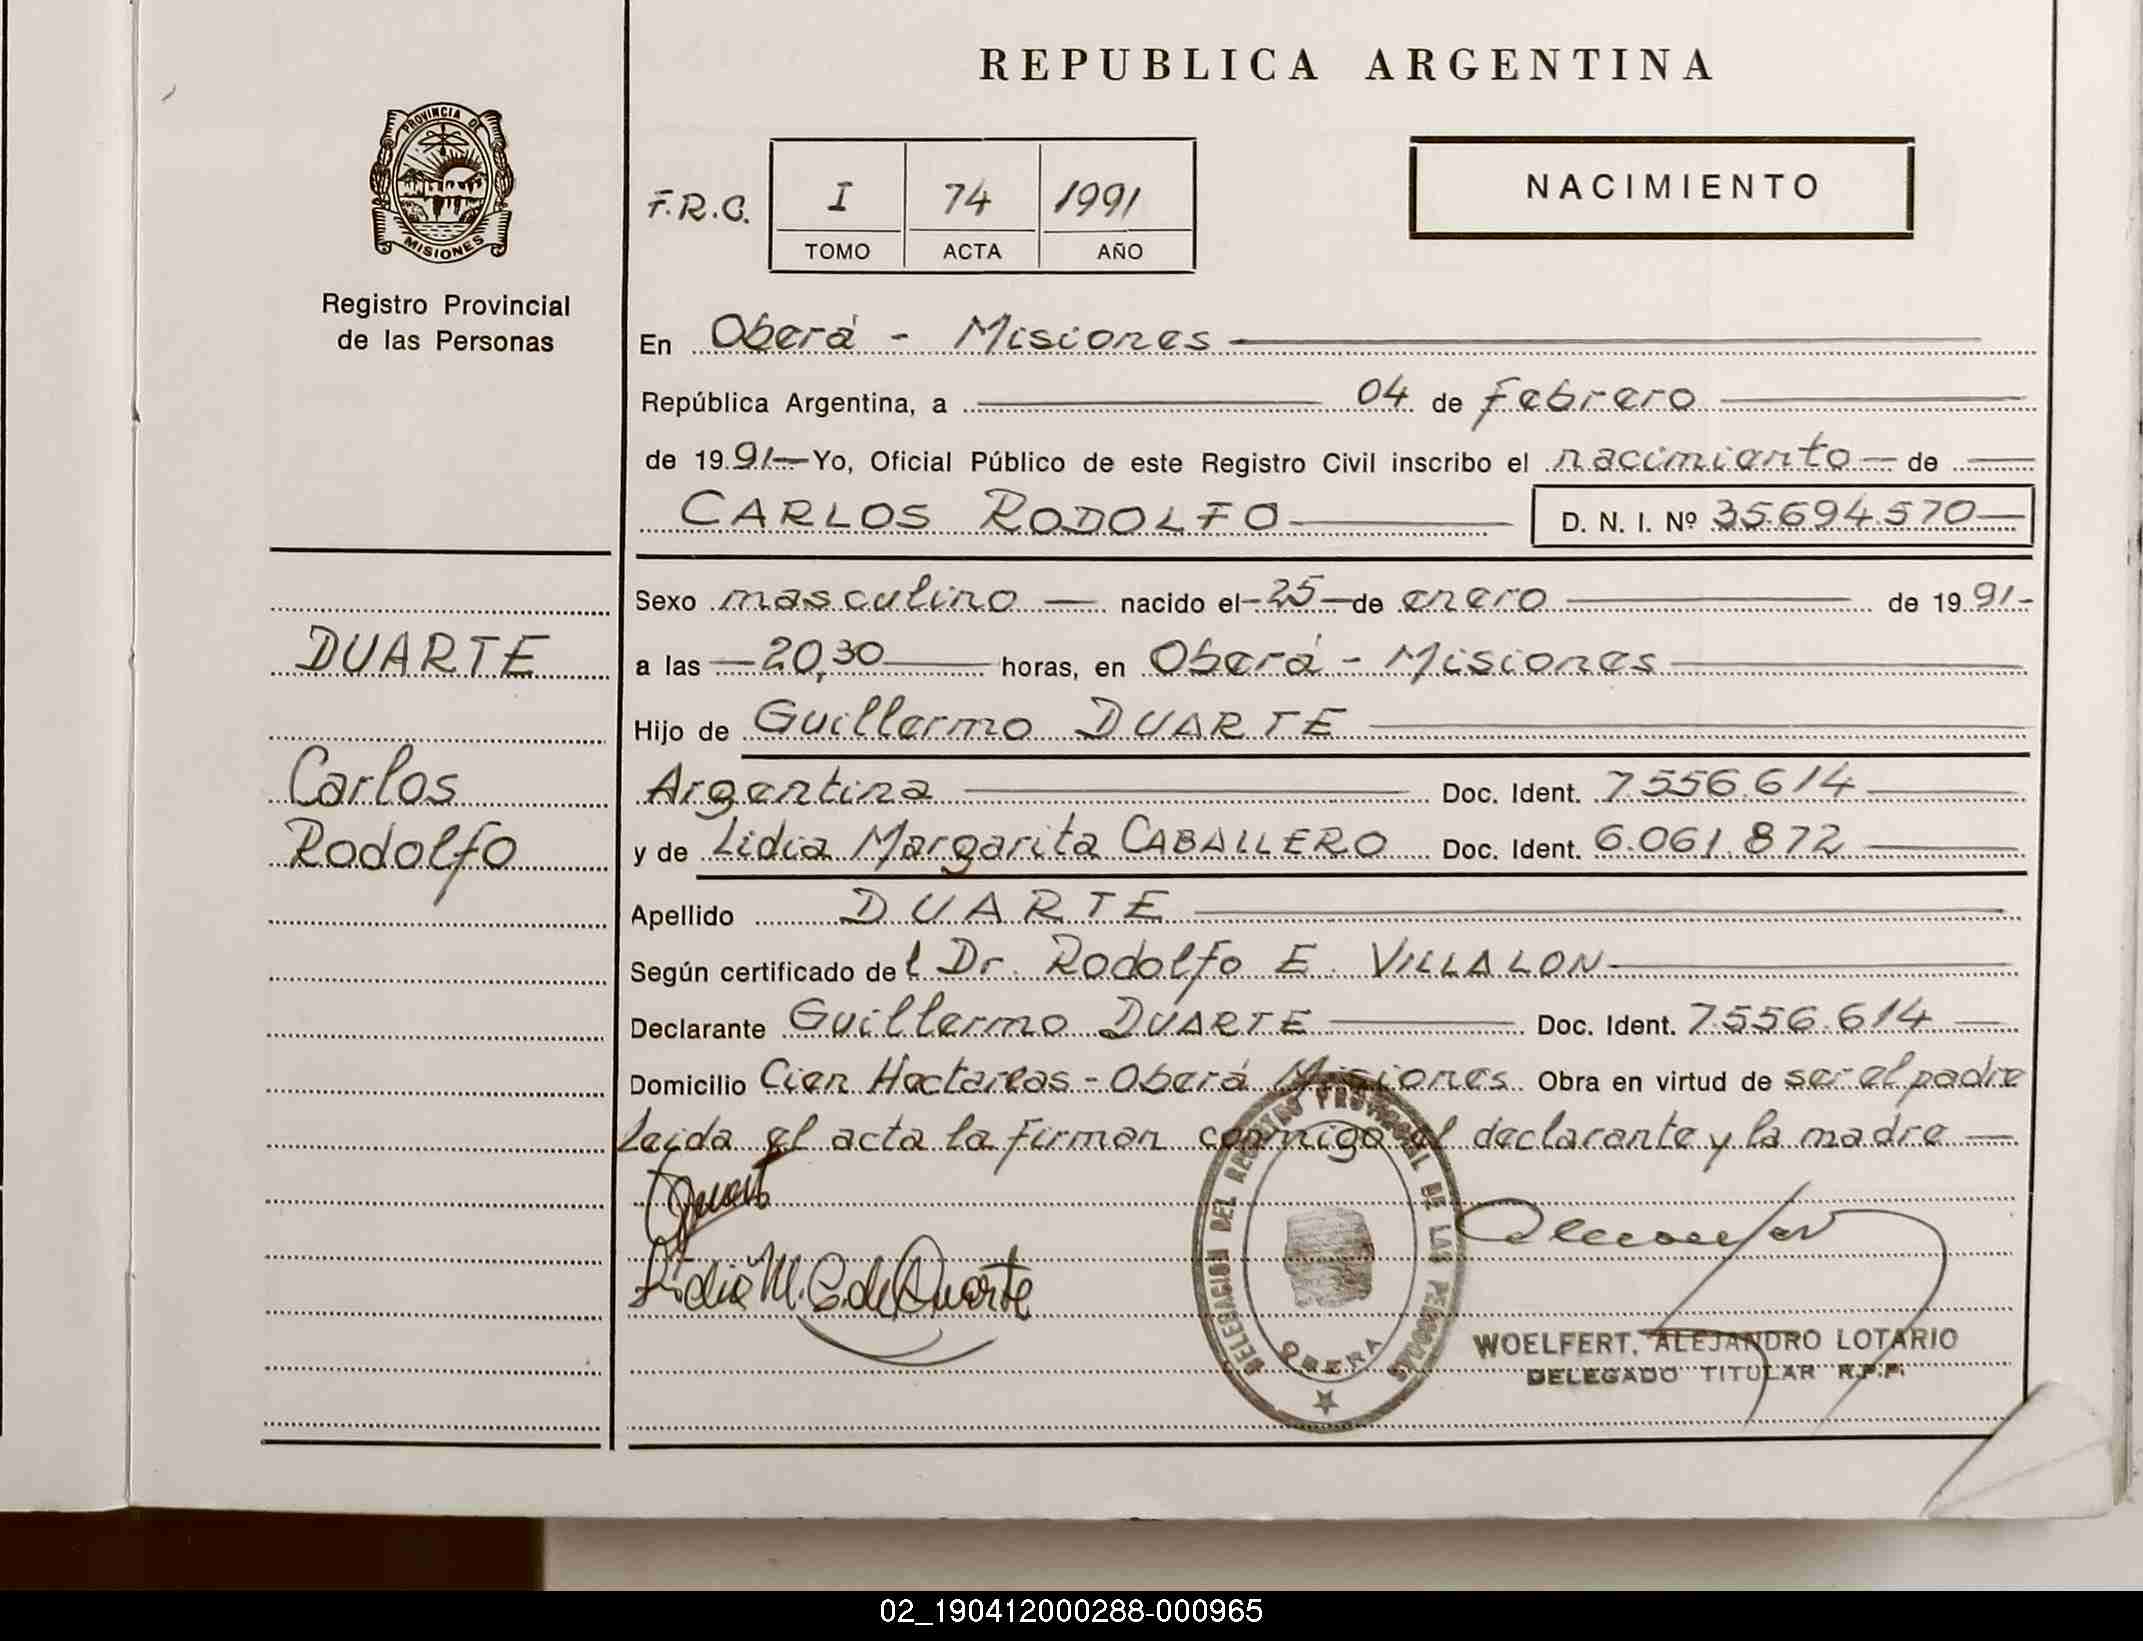 REPUBLICA ARGENTINA
PROVINCIA DE
MISIONES
Registro Provincial
de las Personas
F.R.C.
I 74 1991
TOMO ACTA AÑO
NACIMIENTO
En Oberá - Misiones
República Argentina, a 04 de febrero
de 1991 Yo, Oficial Público de este Registro Civil inscribo el nacimiento de
CARLOS RODOLFO D. N. I. Nº 35.694.570
Sexo masculino nacido el 25 de enero de 1991
DUARTE
a las 20,30 horas, en Oberá - Misiones
Hijo de Guillermo DUARTE
Carlos
Argentina Doc. Ident. 7.556.614
Rodolfo
y de Lidia Margarita CABALLERO Doc. Ident. 6.061.872
Apellido DUARTE
Según certificado del Dr. Rodolfo E. VILLALON
Declarante Guillermo DUARTE Doc. Ident. 7.556.614
Domicilio Cien Hectareas - Oberá Misiones Obra en virtud de ser el padre
Leida el acta la firman conmigo el declarante y la madre
Lidia M. C. de Duarte
DELEGACION DEL REGISTRO PROVINCIAL DE LAS PERSONAS
OBERA
WOELFERT, ALEJANDRO LOTARIO
DELEGADO TITULAR R.P.P.
02_190412000288-000965